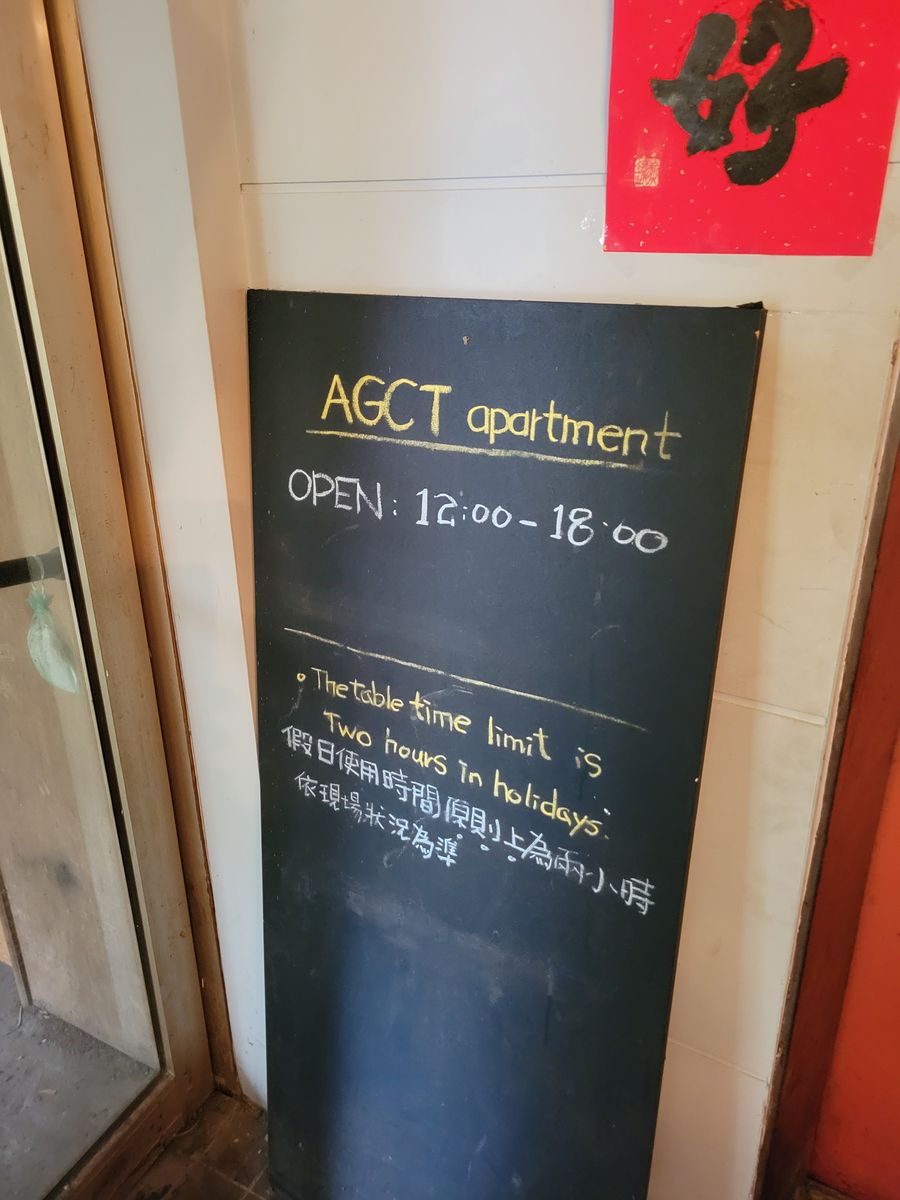 好
AGCT apartment
OPEN: 12:00-18:00
• The table time limit is
Two hours in holidays.
假日使用時間原則上為兩小時
依現場狀況為準